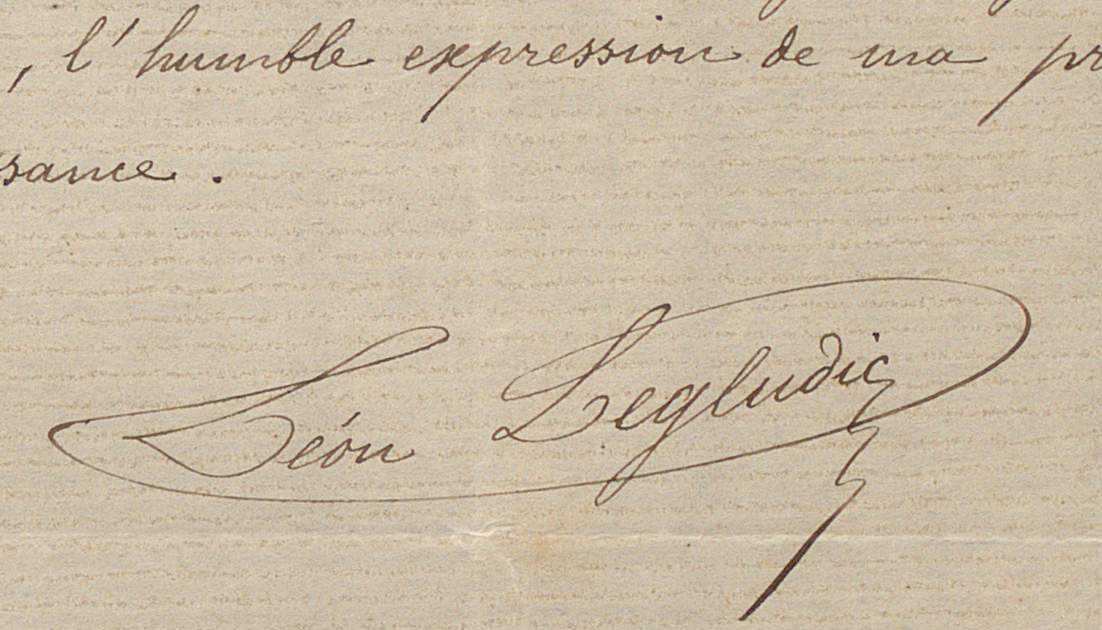 , l'humble expression de ma pr
sance.
Léon Legludic